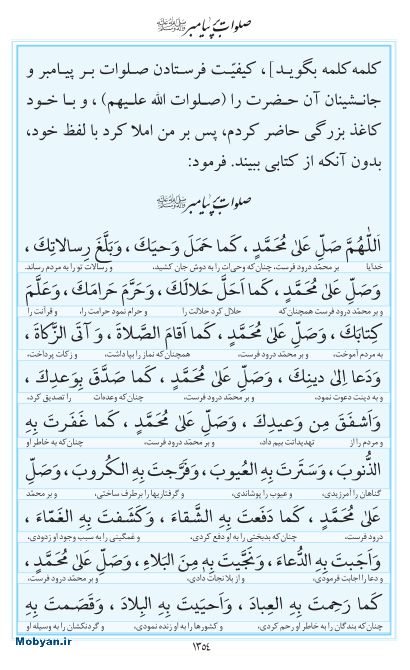 صلوات بر پیامبر ﷺ
کلمه کلمه بگوید]، کیفیّت فرستادن صلوات بـر پیـامبر و
جانـشینان آن حـضرت را (صلوات الله علـیهم) ، و بـا خـود
کاغذ بزرگی حاضر کردم، پس بر من املا کرد با لفظ خود،
بدون آنکه از کتابی ببیند. فرمود:
صلوات بر پیامبر ﷺ
اَللّٰهُمَّ صَلِّ عَلیٰ مُحَمَّدٍ ، کَما حَمَلَ وَحیَكَ ، وَبَلَّغَ رِسالاتِكَ ،
خدایا بر محمّد درود فرست، چنان‌که وحی‌ات را به دوش جان کشید، و رسالات تو را به مردم رساند.
وَصَلِّ عَلیٰ مُحَمَّدٍ ، کَما اَحَلَّ حَلالَكَ ، وَحَرَّمَ حَرامَكَ ، وَعَلَّمَ
و بر محمّد درود فرست همچنان‌که حلال کرد حلالت را و حرام نمود حرامت را، و قرآنت را
کِتابَكَ ، وَصَلِّ عَلیٰ مُحَمَّدٍ ، کَما اَقامَ الصَّلاةَ ، وَ آتَی الزَّکاةَ ،
به مردم آموخت، و بر محمّد درود فرست، همچنان‌که نماز را بپا داشت، و زکات پرداخت،
وَدَعا اِلیٰ دینِكَ ، وَصَلِّ عَلیٰ مُحَمَّدٍ ، کَما صَدَّقَ بِوَعدِكَ ،
و به دینت دعوت نمود، و بر محمّد درود فرست، چنان‌که وعده‌ات را تصدیق کرد،
وَاَشفَقَ مِن وَعیدِكَ ، وَصَلِّ عَلیٰ مُحَمَّدٍ ، کَما غَفَرتَ بِهِ
و مردم را از تهدیداتت بیم داد، و بر محمّد درود فرست، چنان‌که به خاطر او
الذُّنوبَ ، وَسَتَرتَ بِهِ العُیوبَ ، وَفَرَّجتَ بِهِ الکُروبَ ، وَصَلِّ
گناهان را آمرزیدی، و عیوب را پوشاندی، و گرفتاریها را برطرف ساختی، و بر محمّد
عَلیٰ مُحَمَّدٍ ، کَما دَفَعتَ بِهِ الشَّقاءَ ، وَکَشَفتَ بِهِ الغَمّاءَ ،
درود فرست، چنان‌که بدبختی را به او دفع کردی، و غمگینی را به سبب وجود او زدودی،
وَاَجَبتَ بِهِ الدُّعاءَ ، وَنَجَّیتَ بِهِ مِنَ البَلاءِ ، وَصَلِّ عَلیٰ مُحَمَّدٍ ،
و دعا را اجابت فرمودی، و از بلا نجات دادی، و بر محمّد درود فرست،
کَما رَحِمتَ بِهِ العِبادَ ، وَاَحیَیتَ بِهِ البِلادَ ، وَقَصَمتَ بِهِ
چنان‌که بندگان را به خاطر او رحم کردی، و کشورها را به او زنده نمودی، و گردنکشان را به وسیله او
۱۳۵۴
Mobyan.ir